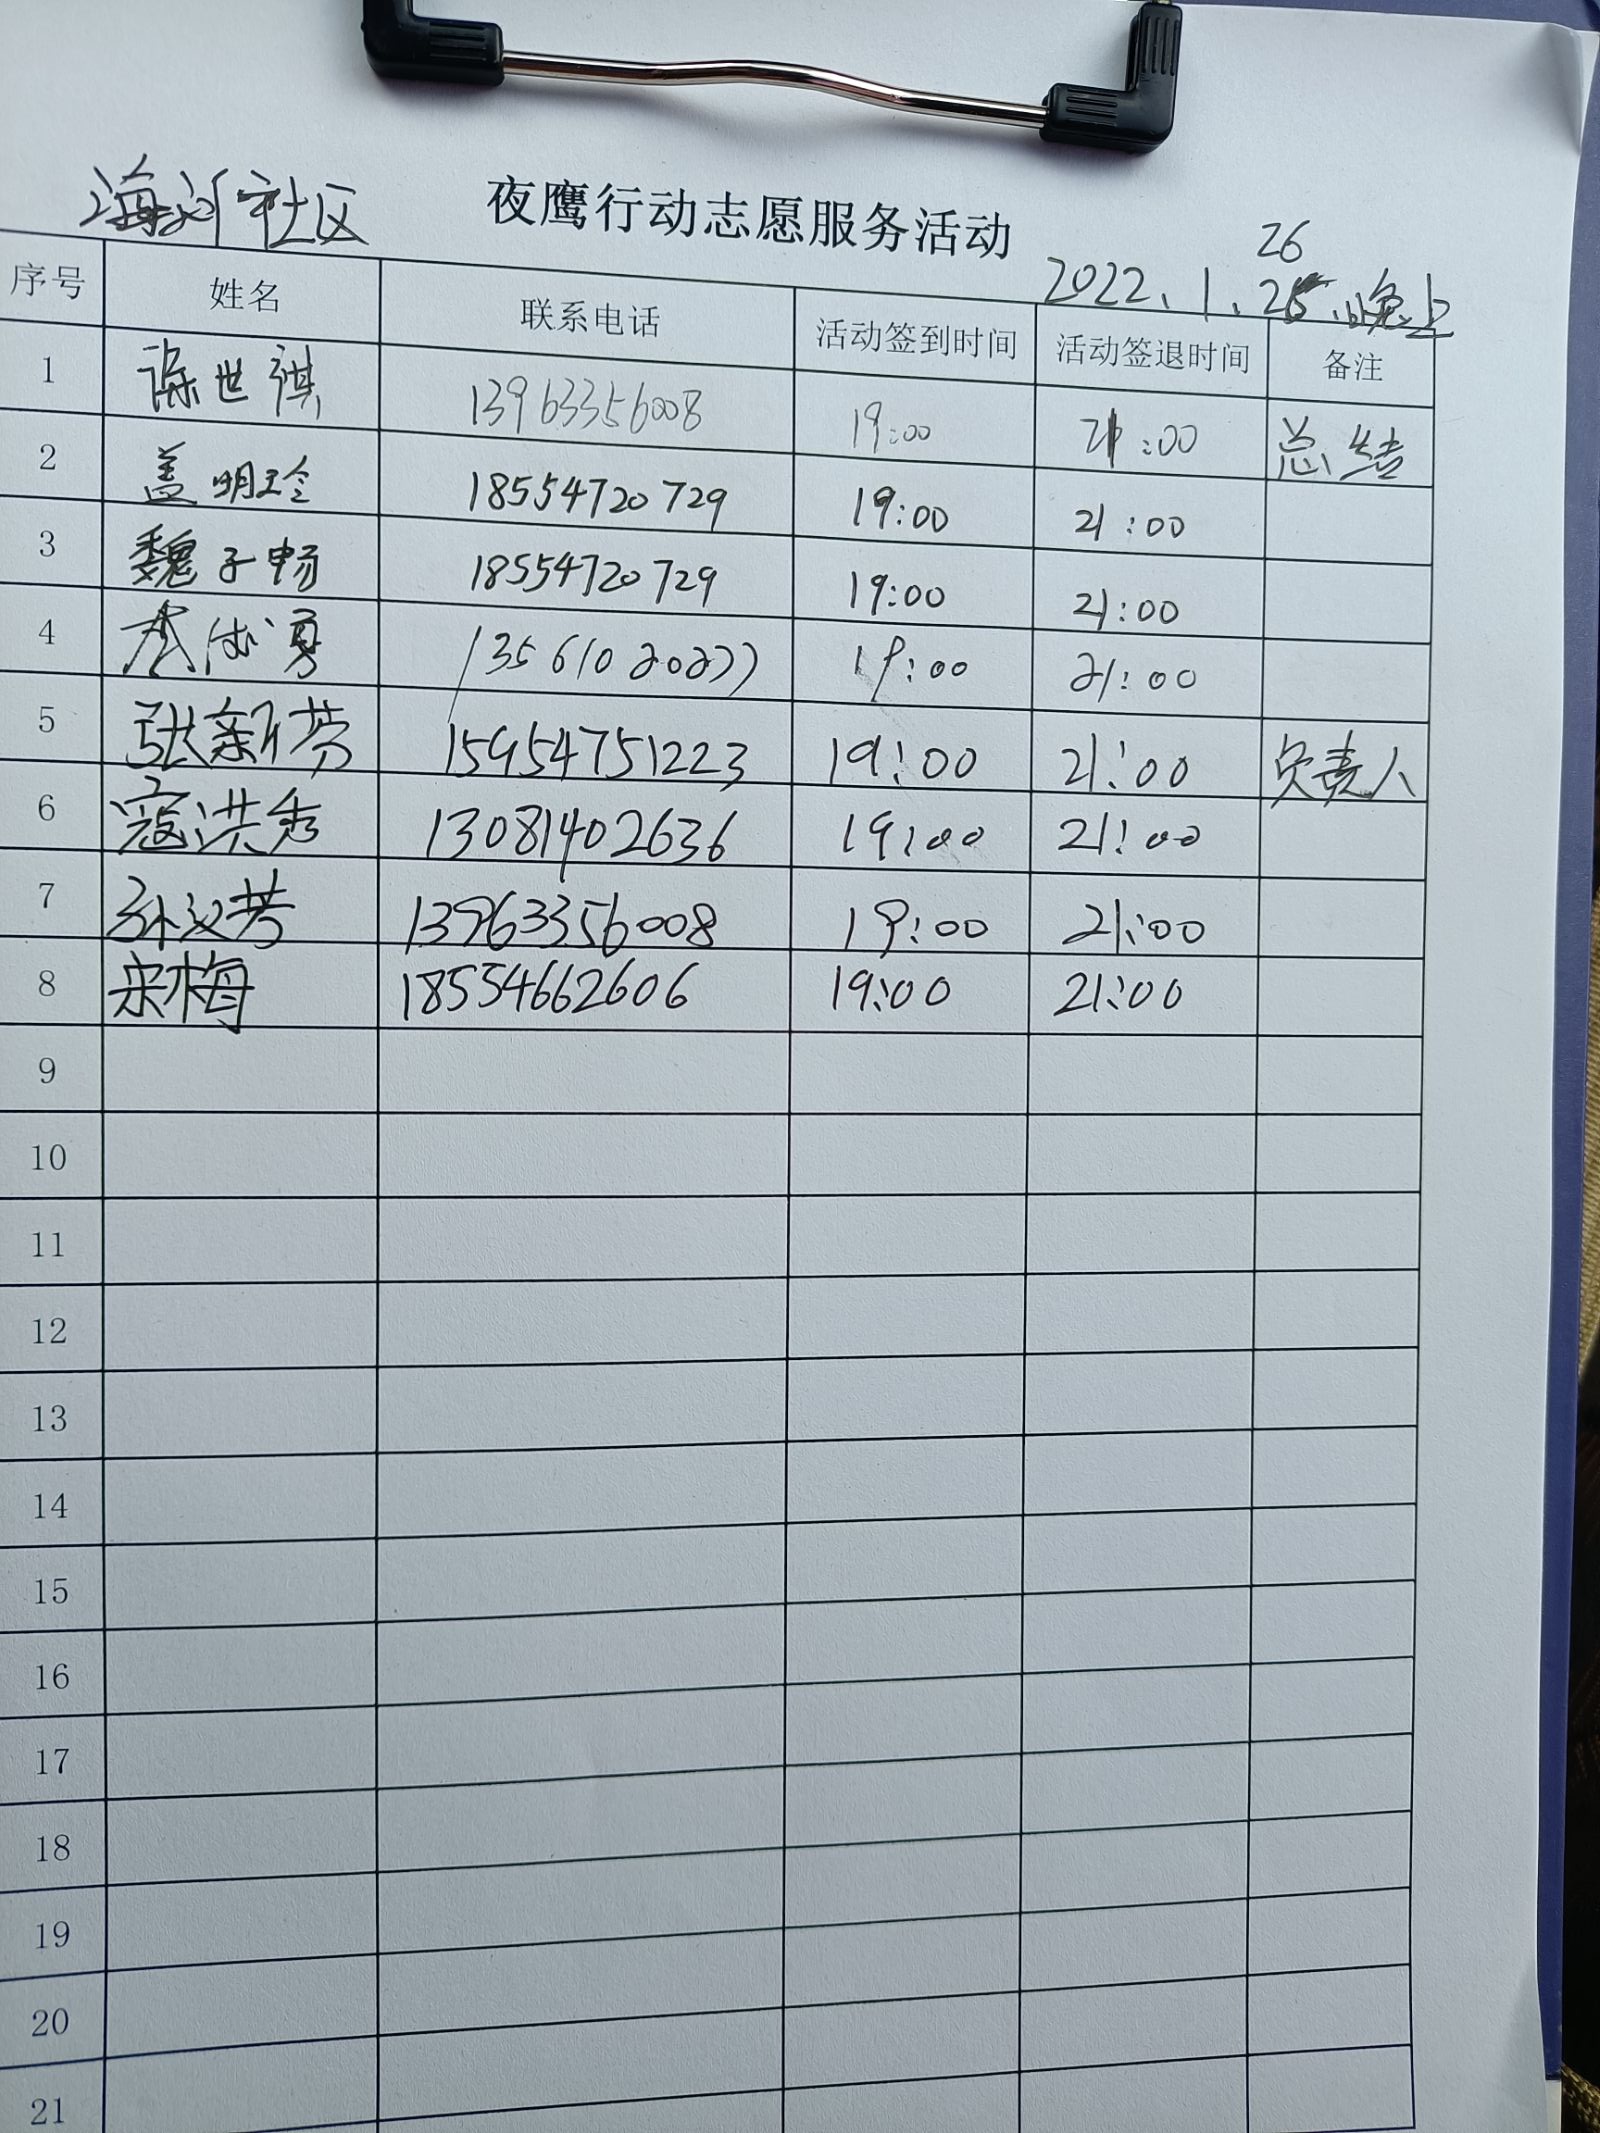 社区 夜鹰行动志愿服务活动
26
2022、1、25、晚上
序号 姓名 联系电话 活动签到时间 活动签退时间 备注
1 世祺 13963356008 19:00 21:00 总结
2 盖明玲 18554720729 19:00 21:00
3 魏子畅 18554720729 19:00 21:00
4 19:00 21:00
5 张新芳 15954751223 19:00 21:00 负责人
6 寇洪秀 13081402636 19:00 21:00
7 孙义芳 13963356008 19:00 21:00
8 宋梅 18554662606 19:00 21:00
9
10
11
12
13
14
15
16
17
18
19
20
21